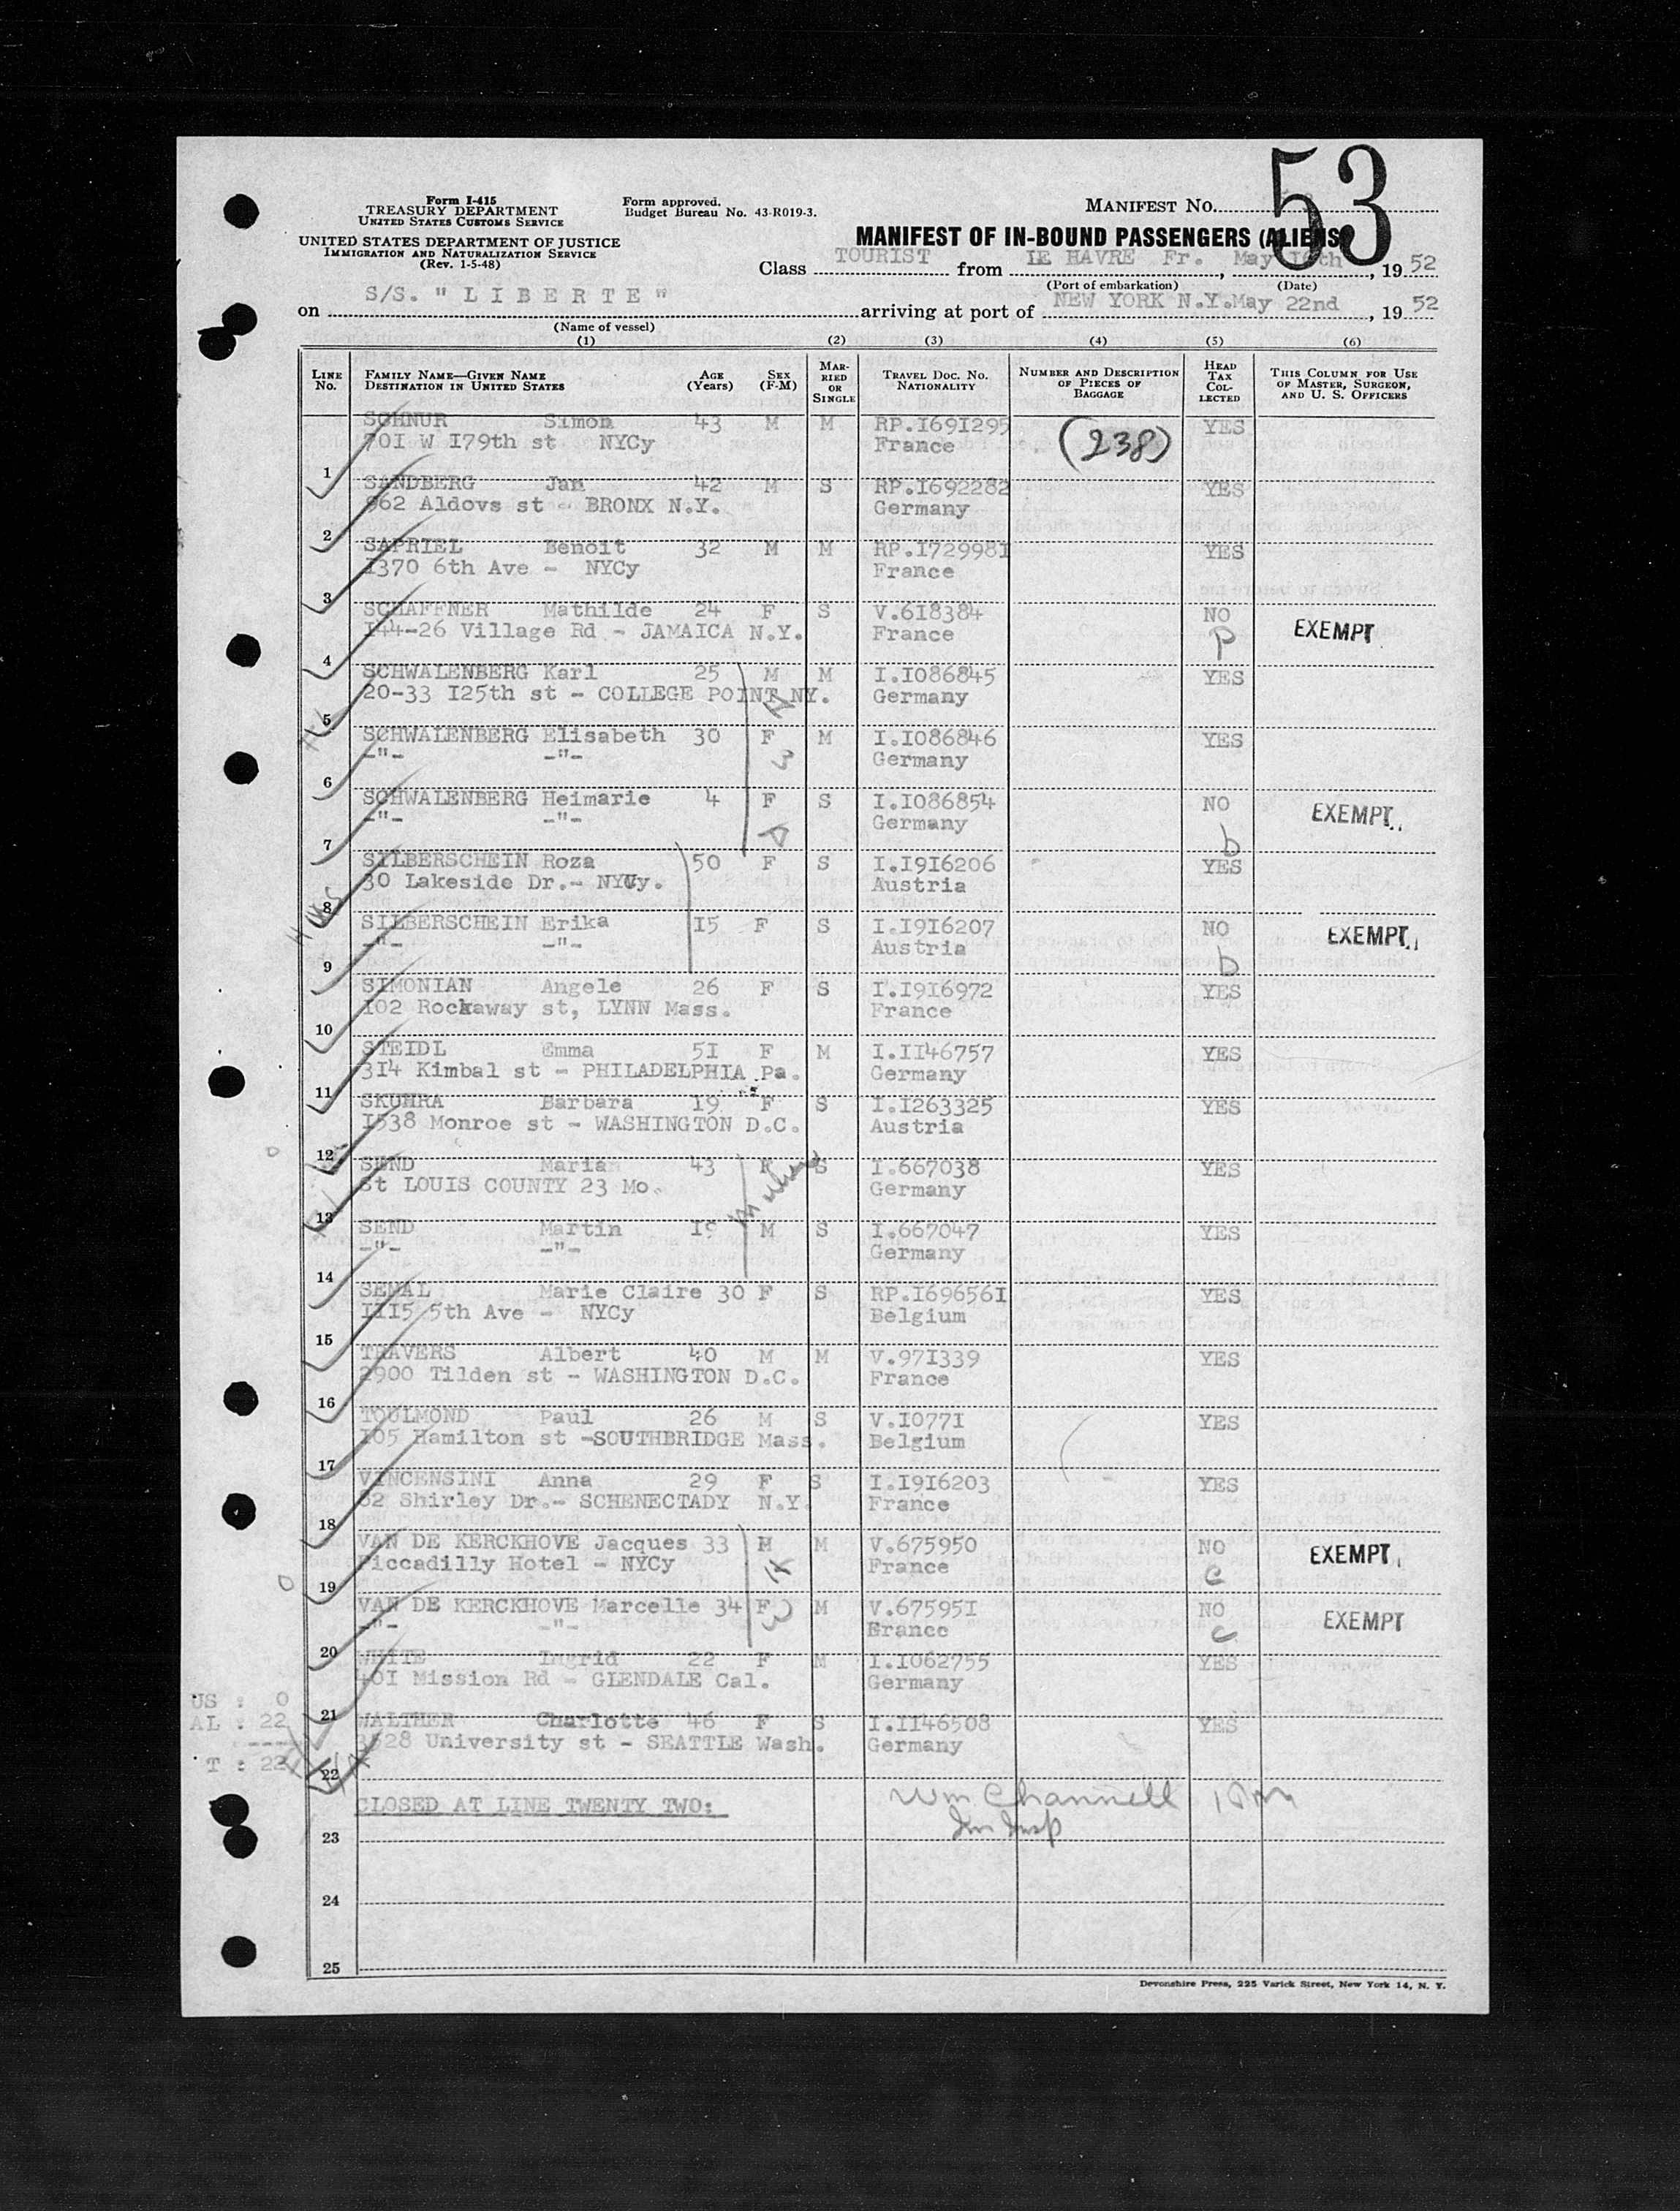 53
Form I-415
TREASURY DEPARTMENT
UNITED STATES CUSTOMS SERVICE
UNITED STATES DEPARTMENT OF JUSTICE
IMMIGRATION AND NATURALIZATION SERVICE
(Rev. 1-5-48)
Form approved.
Budget Bureau No. 43-R019-3.
MANIFEST No.
MANIFEST OF IN-BOUND PASSENGERS (ALIENS)
Class TOURIST from LE HAVRE Fr. , May , 19 52
(Port of embarkation) (Date)
on S/S. "LIBERTE" arriving at port of NEW YORK N.Y. May 22nd , 19 52
(Name of vessel)
(1) (2) (3) (4) (5) (6)
LINE No. FAMILY NAME—GIVEN NAME DESTINATION IN UNITED STATES AGE (Years) SEX (F-M) MARRIED OR SINGLE TRAVEL DOC. NO. NATIONALITY NUMBER AND DESCRIPTION OF PIECES OF BAGGAGE HEAD TAX COLLECTED THIS COLUMN FOR USE OF MASTER, SURGEON, AND U. S. OFFICERS
SCHNUR Simon 43 M M RP.I69I295 (238) YES
1 70I W I79th st NYCy France
SANDBERG Jan 42 M S RP.I692282 YES
2 962 Aldovs st - BRONX N.Y. Germany
SAPRIEL Benoit 32 M M RP.I72998I YES
3 I370 6th Ave - NYCy France
SCHAFFNER Mathilde 24 F S V.6I8384 NO EXEMPT
4 I44-26 Village Rd - JAMAICA N.Y. France P
SCHWALENBERG Karl 25 M M I.I086845 YES
5 20-33 I25th st - COLLEGE POINT NY. Germany
SCHWALENBERG Elisabeth 30 F M I.I086846 YES
6 -"- -"- Germany
SCHWALENBERG Heimarie 4 F S I.I086854 NO EXEMPT
7 -"- -"- Germany b
SILBERSCHEIN Roza 50 F S I.I9I6206 YES
8 30 Lakeside Dr.- NYCy. Austria
SILBERSCHEIN Erika I5 F S I.I9I6207 NO EXEMPT
9 -"- -"- Austria b
SIMONIAN Angele 26 F S I.I9I6972 YES
10 I02 Rockaway st, LYNN Mass. France
STEIDL Emma 5I F M I.II46757 YES
11 3I4 Kimbal st - PHILADELPHIA Pa. Germany
SKUHRA Barbara I9 F S I.I263325 YES
12 I538 Monroe st - WASHINGTON D.C. Austria
SEND Maria 43 F S I.667038 YES
13 St LOUIS COUNTY 23 Mo. Germany
SEND Martin I9 M S I.667047 YES
14 -"- -"- Germany
SEMAL Marie Claire 30 F S RP.I69656I YES
15 III5 5th Ave - NYCy Belgium
TRAVERS Albert 40 M M V.97I339 YES
16 2900 Tilden st - WASHINGTON D.C. France
TOULMOND Paul 26 M S V.I077I YES
17 I05 Hamilton st -SOUTHBRIDGE Mass. Belgium
VINCENSINI Anna 29 F S I.I9I6203 YES
18 Shirley Dr.- SCHENECTADY N.Y. France
VAN DE KERCKHOVE Jacques 33 M M V.675950 NO EXEMPT
19 Piccadilly Hotel - NYCy France c
VAN DE KERCKHOVE Marcelle 34 F M V.67595I NO EXEMPT
20 -"- -"- France c
WHITE Ingrid 22 F M I.I062755 YES
21 40I Mission Rd - GLENDALE Cal. Germany
WALTHER Charlotte 46 F S I.II46508 YES
22 3528 University st - SEATTLE Wash. Germany
US : 0
AL : 22
----
T : 22
CLOSED AT LINE TWENTY TWO:
Wm Channell
Im Insp
23
24
25
Devonshire Press, 225 Varick Street, New York 14, N. Y.